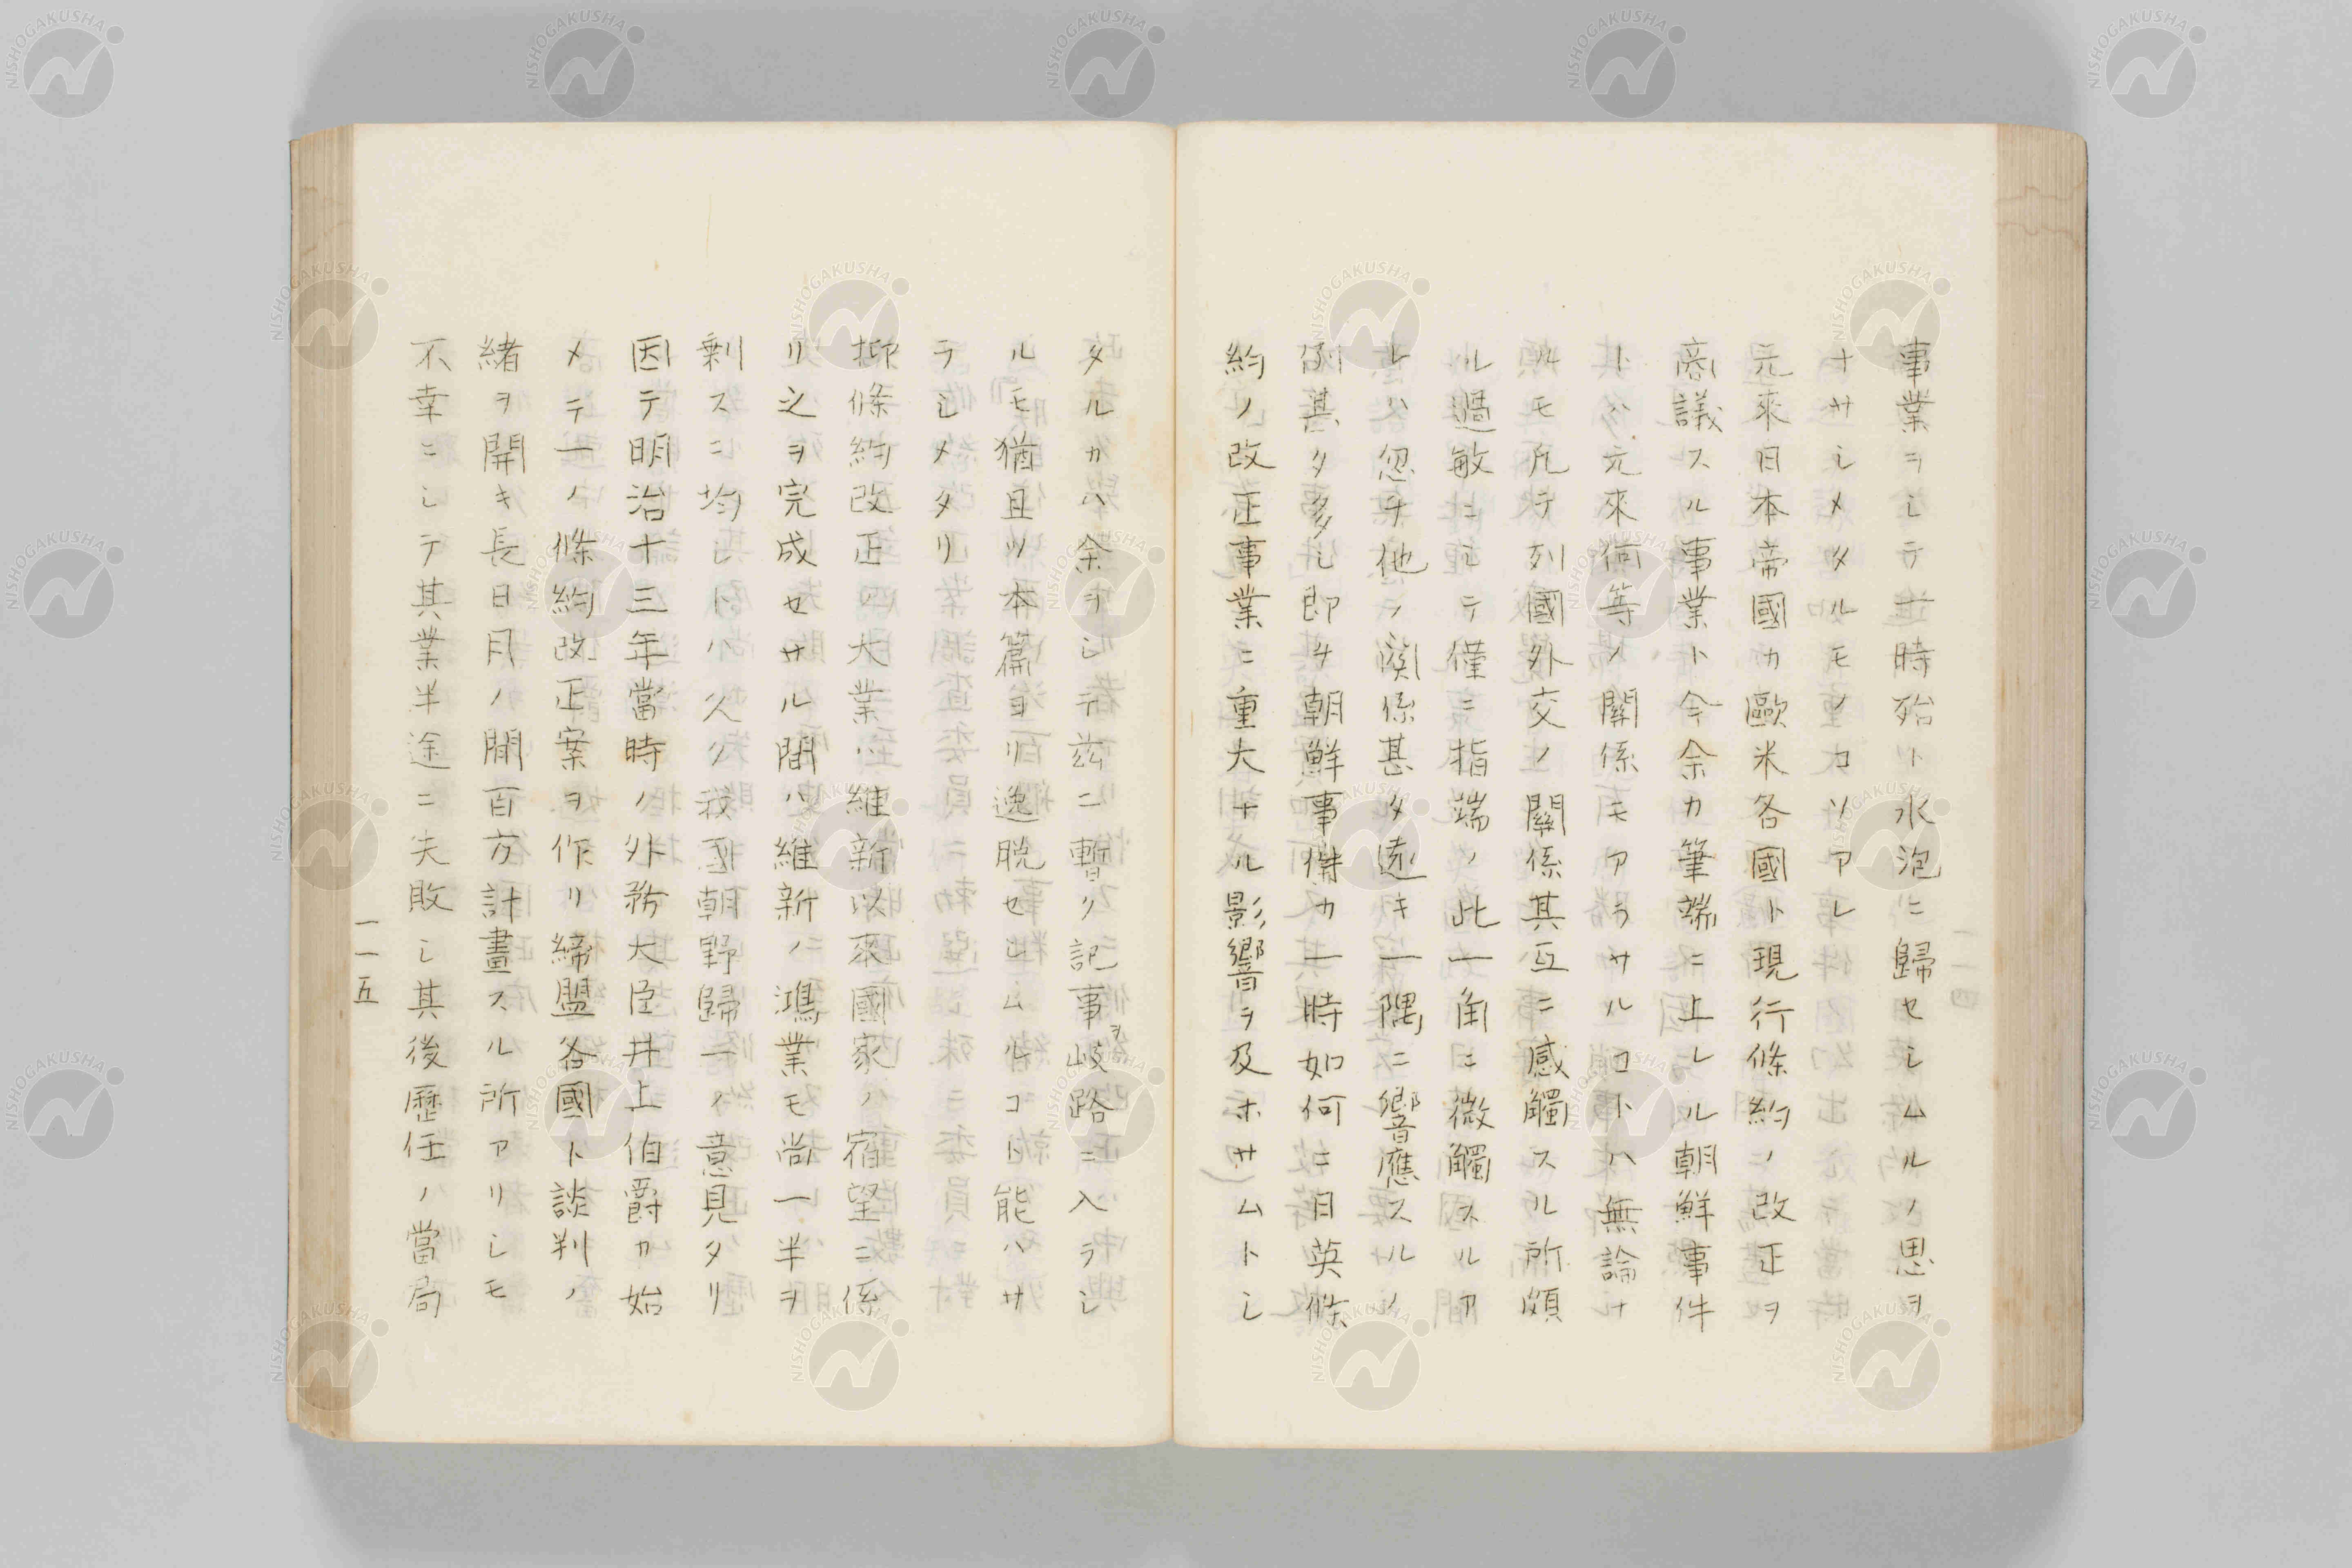 事業ヲシテ一時殆ト水泡ニ歸セシムルノ思ヲ
ナサシメタルモノコソアレ
元來日本帝國カ歐米各國ト現行條約ノ改正ヲ
商議スル事業ト今余カ筆端ニ上レル朝鮮事件
トハ元來何等ノ關係モアラサルコトハ無論ナ
ルモ凡テ列國外交ノ關係其互ニ感觸スル所頗
ル過敏ニシテ僅ニ指端ノ此一角ニ微觸スルア
レハ忽チ他ノ関係甚タ遠キ一隅ニ響應スルノ
例甚タ多シ即チ朝鮮事件カ一時如何ニ日英條
約ノ改正事業ニ重大ナル影響ヲ及ホサムトシ
タルカハ余ヲシテ茲ニ暫ク記事ヲ岐路ニ入ラシ
ルモ猶且ツ本篇ヨリ逸脱セシムルコト能ハサ
ラシメタリ
抑條約改正ノ大業ハ維新以來國家ノ宿望ニ係
リ之ヲ完成セサル間ハ維新ノ鴻業モ尚一半ヲ
剰スニ均シトハ久ク我國朝野歸一ノ意見タリ
因テ明治十三年當時ノ外務大臣井上伯爵カ始
メテ一ノ條約改正案ヲ作リ締盟各國ト談判ノ
緒ヲ開キ長日月ノ間百方計畫スル所アリシモ
不幸ニシテ其業半途ニ失敗シ其後歴任ノ當局
一一五
NISHOGAKUSHA